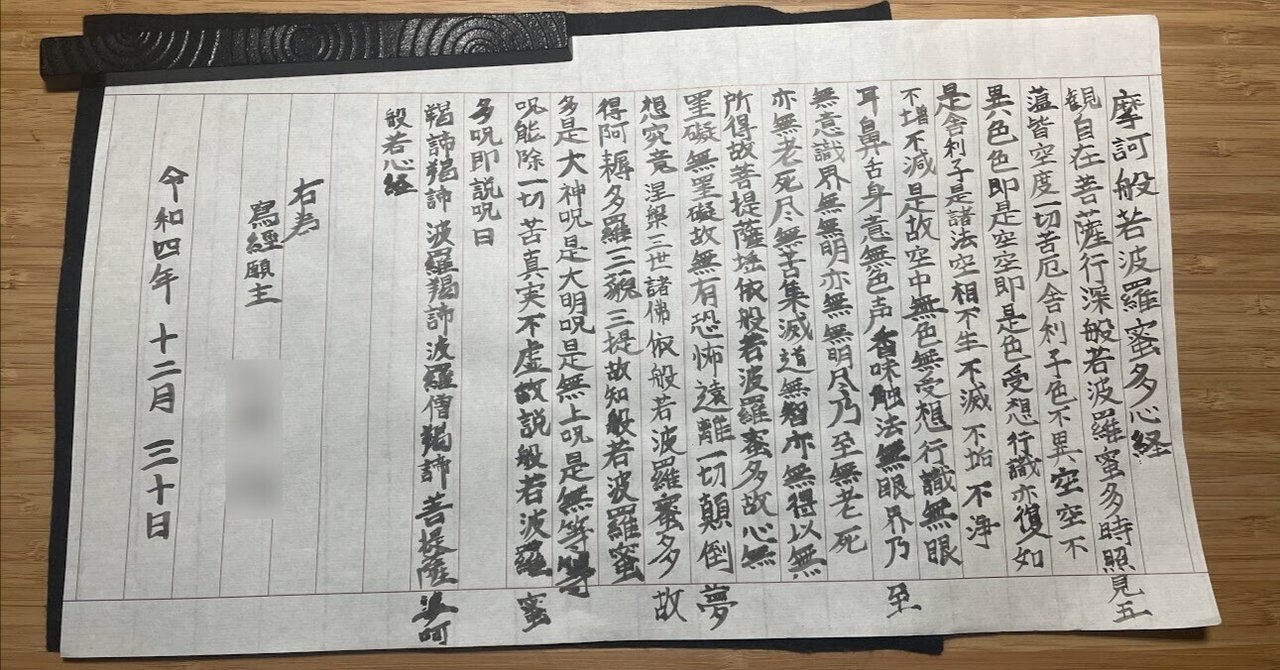 摩訶般若波羅蜜多心経
観自在菩薩行深般若波羅蜜多時照見五
蘊皆空度一切苦厄舎利子色不異空空不
異色色即是空空即是色受想行識亦復如
是舎利子是諸法空相不生不滅不垢不浄
不増不減是故空中無色無受想行識無眼
耳鼻舌身意無色声香味触法無眼界乃至
無意識界無無明亦無無明尽乃至無老死
亦無老死尽無苦集滅道無智亦無得以無
所得故菩提薩埵依般若波羅蜜多故心無
罣礙無罣礙故無有恐怖遠離一切顛倒夢
想究竟涅槃三世諸佛依般若波羅蜜多故
得阿耨多羅三藐三提故知般若波羅蜜
多是大神呪是大明呪是無上呪是無等等
呪能除一切苦真実不虚故説般若波羅蜜
多呪即説呪曰
羯諦羯諦 波羅羯諦 波羅僧羯諦 菩提薩婆呵
般若心経
右為
寫經願主
令和四年 十二月 三十日